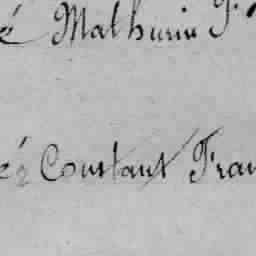 é Mathurin J.
é Constant Fran